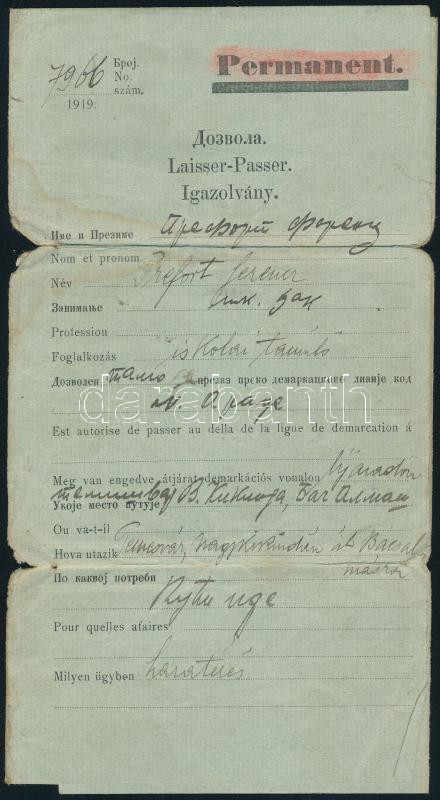 Број.
7966 No.
szám.
1919.
Permanent.
Дозвола.
Laisser-Passer.
Igazolvány.
Име и Презиме Префорт Ференц
Nom et pronom
Név Prefort Ferencz
Занимање шк. ђак
Profession
Foglalkozás iskolai tanuló
Дозволен тамо прелаз преко демаркационе линије код
Н. Арада
Est autorise de passer au della de la ligne de demarcation á
Meg van engedve átjárat demarkációs vonalon Újaradon
Темишвар В. Кикинда, Бач Алмаш
Укоје место путује
Ou va-t-il
Hova utazik Temesvár, Nagykikindán át Bácsalmásra
По каквој потреби
Кући иде
Pour quelles afaires
Milyen ügyben hazatérés
darabanth